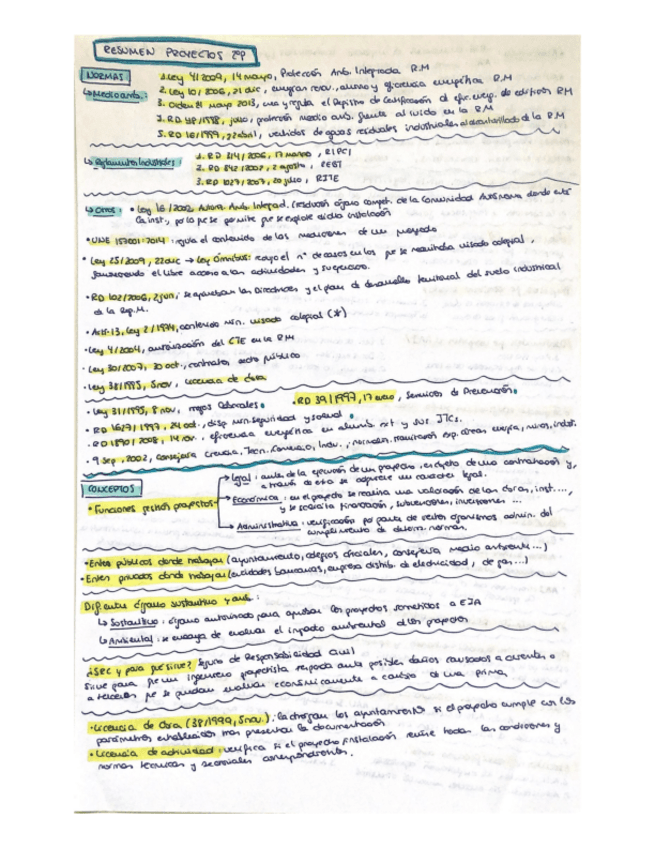 RESUMEN PROYECTOS 2P
NORMAS: 1. Ley 4/2009, 14 mayo, Protección Amb. Integrada R.M
↳ Medio amb.: 2. Ley 10/2006, 21 dic, energías renov., ahorro y eficiencia energética R.M
3. Orden 21 mayo 2013, crea y regula el Registro de Certificación de efic. energ. de edificios RM
3. RD 48/1998, julio, protección medio amb. frente al ruido en la R.M
5. RD 16/1999, 22 abril, vertidos de aguas residuales industriales al alcantarillado de la R.M
↳ Reglamentos Industriales: 1. RD 314/2006, 17 marzo, RIPCI
2. RD 842/2002, 2 agosto, REBT
3. RD 1027/2007, 20 julio, RITE
↳ Otros: • Ley 16/2002, Autoriz. Amb. Integrad. (resolución órgano compet. de la Comunidad Autónoma donde esté
la inst., por la que se permite que se explote dicha instalación
• UNE 157001:2014: regula el contenido de las mediciones de un proyecto
• Ley 25/2009, 22 dic → Ley Ómnibus: recoge el nº de casos en los que se necesitaba visado colegial,
favoreciendo el libre acceso a las actividades y su ejercicio.
• RD 102/2006, 2 jun, se aprueban las Directrices y el plan de desarrollo territorial del suelo industrial
de la Reg. M.
• Art. 13, Ley 2/1974, contenido mín. visado colegial (*)
• Ley 4/2004, autorización del CTE en la R.M
• Ley 30/2007, 30 oct., contratos sector público
• Ley 38/1995, 5 nov, Licencia de obra
• Ley 31/1995, 8 nov, riesgos laborales • RD 39/1997, 17 enero, Servicios de Prevención
• RD 1627/1997, 24 oct, disp. mín. seguridad y salud
• RD 1890/2008, 14 nov. eficiencia energética en alumb. ext y sus ITCs.
• 9 sep, 2002, Consejería Ciencia, Tecn. Comercio, Indu.
CONCEPTOS
• Funciones gestión proyectos
→ Legal: antes de la ejecución de un proyecto, es objeto de una contratación y,
a través de esta se adquiere un carácter legal.
→ Económica: en el proyecto se realiza una valoración de las obras, inst....,
y se solicita financiación, subvenciones, inversiones ...
→ Administrativa: verificación por parte de ciertos organismos admin. del
cumplimiento de determ. normas.
• Entes públicos donde trabajar (ayuntamiento, colegios oficiales, consejería medio ambiente...)
• Entes privados donde trabajar (entidades bancarias, empresa distrib. de electricidad, de gas...)
Dif. entre órgano sustantivo y amb:
↳ Sustantivo: órgano autorizado para aprobar los proyectos sometidos a EIA
↳ Ambiental: se encarga de evaluar el impacto ambiental de los proyectos
¿SRC y para qué sirve? Seguro de Responsabilidad Civil
Sirve para que un ingeniero proyectista responda ante posibles daños causados a clientes o
a terceros que se puedan evaluar económicamente a cambio de una prima.
• Licencia de Obra (38/1999, 5 nov.): la otorgan los ayuntamientos si el proyecto cumple con los
parámetros establecidos tras presentar la documentación
• Licencia de actividad: verifica si el proyecto/instalación reúne todas las condiciones y
normas técnicas y sectoriales correspondientes.